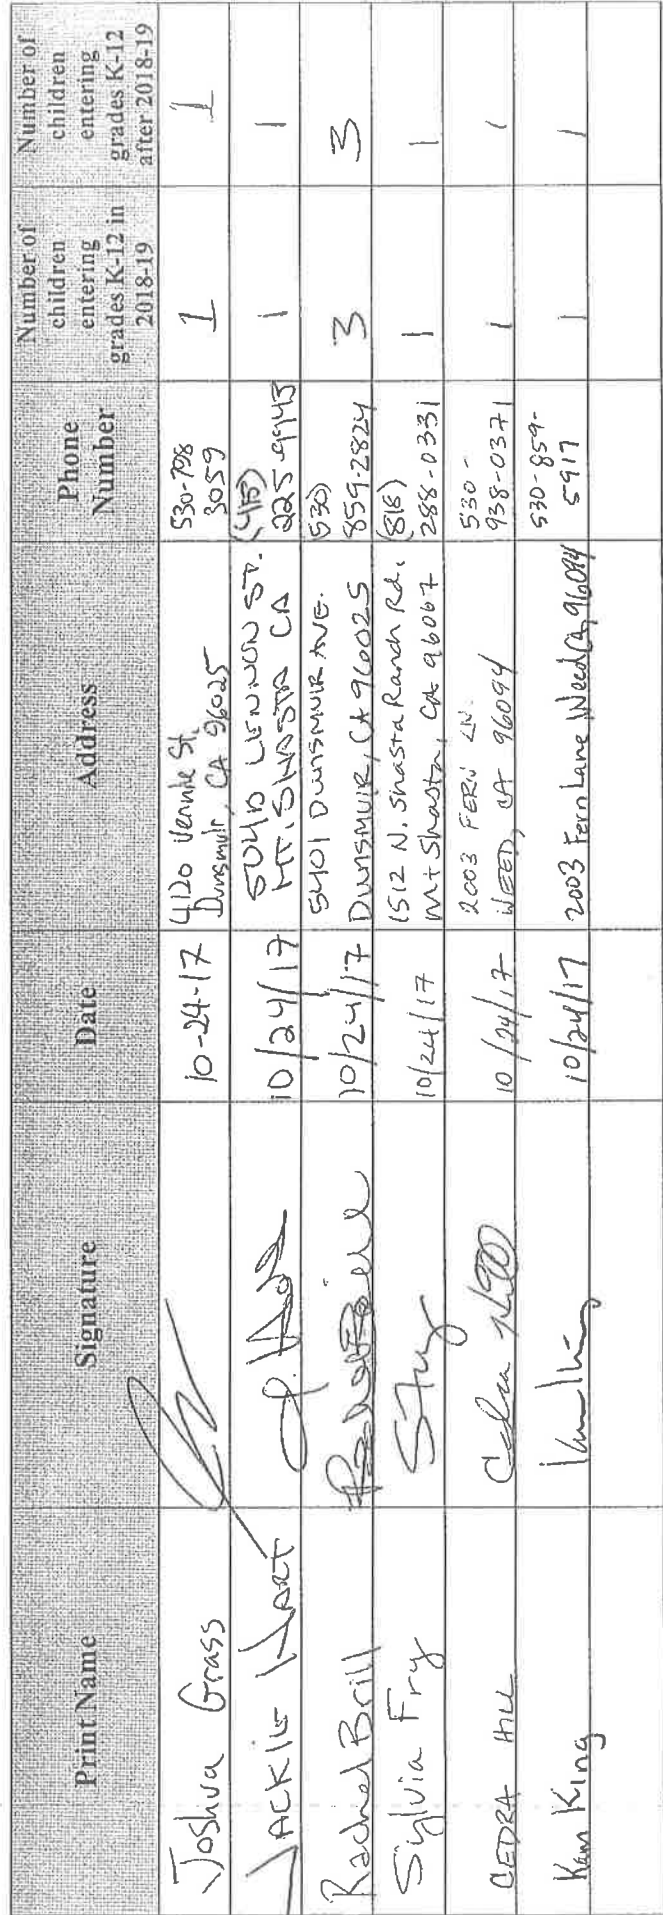 Print Name
Signature
Date
Address
Phone
Number
Number of
children
entering
grades K-12 in
2018-19
Number of
children
entering
grades K-12
after 2018-19
Joshua Grass
10-24-17
4120 St.
Dunsmuir, CA 96025
530-798
3059
1
1
JACKIE HART
J. Hart
10/24/17
504 B LENNON ST.
MT. SHASTA CA
(415)
225-9945
1
1
Rachel Brill
Rachel Brill
10/24/17
5401 Dunsmuir AVE.
Dunsmuir, CA 96025
530)
859-2824
3
3
Sylvia Fry
10/24/17
1512 N. Shasta Ranch Rd.
Mt Shasta, CA 96067
(818)
288-0331
1
1
CEDRA HILL
Cedra Hill
10/24/17
2003 FERN LN.
WEED, CA 96094
530-
938-0371
1
1
Kam King
10/24/17
2003 Fern Lane Weed CA 96094
530-859-
5917
1
1